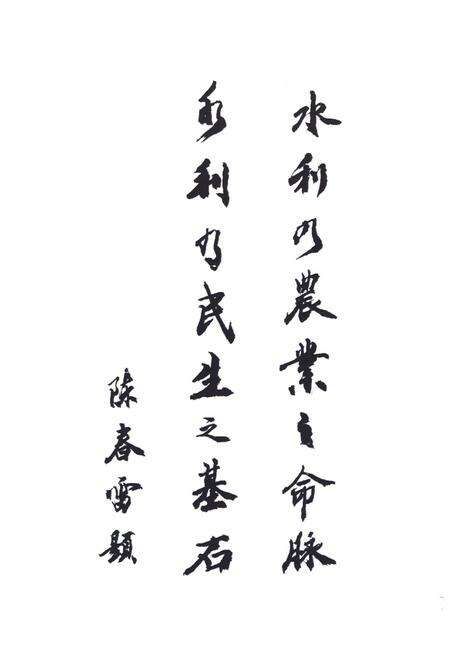 水利乃農業之命脉
水利为民生之基石
陈春雷題